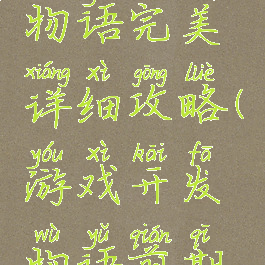 物语完美
xiáng xì gōng lüè
详细攻略(
yóu xì kāi fā
游戏开发
wù yǔ qián qī
物语前期